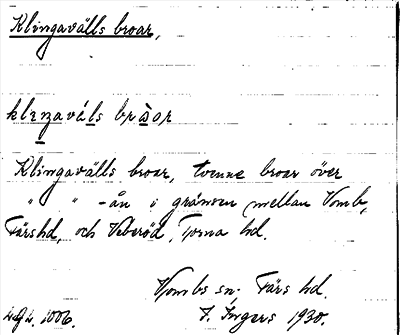 Klingavälls broar,
klɪŋaváls brɑ̀or
Klingavälls broar, tvenne broar över
" " -ån i gränsen mellan Vomb,
Färs hd, och Veberöd, Torna hd.
Vombs sn. Färs hd.
I. Ingers 1930.